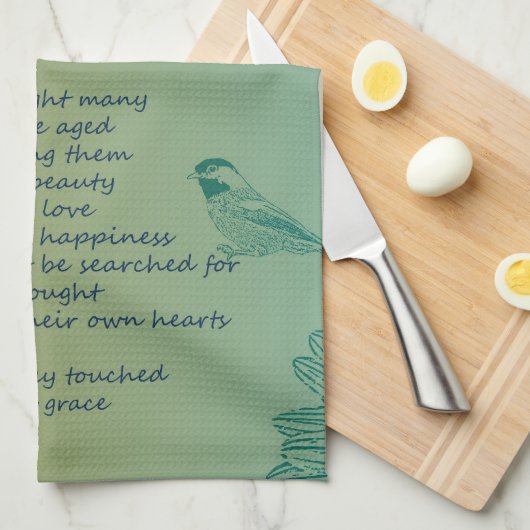 ght many
e aged
ng them
beauty
love
happiness
be searched for
ought
heir own hearts
y touched
grace